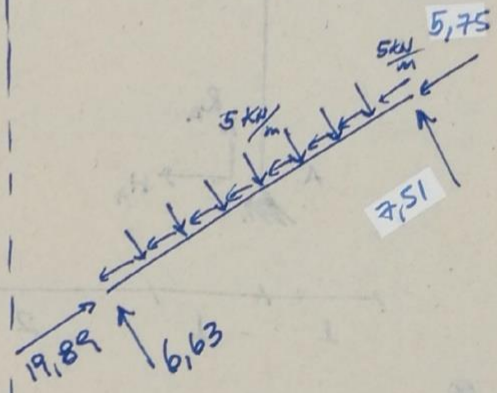 5,75
5 KN/m
5 KN/m
7,51
19,89
6,63